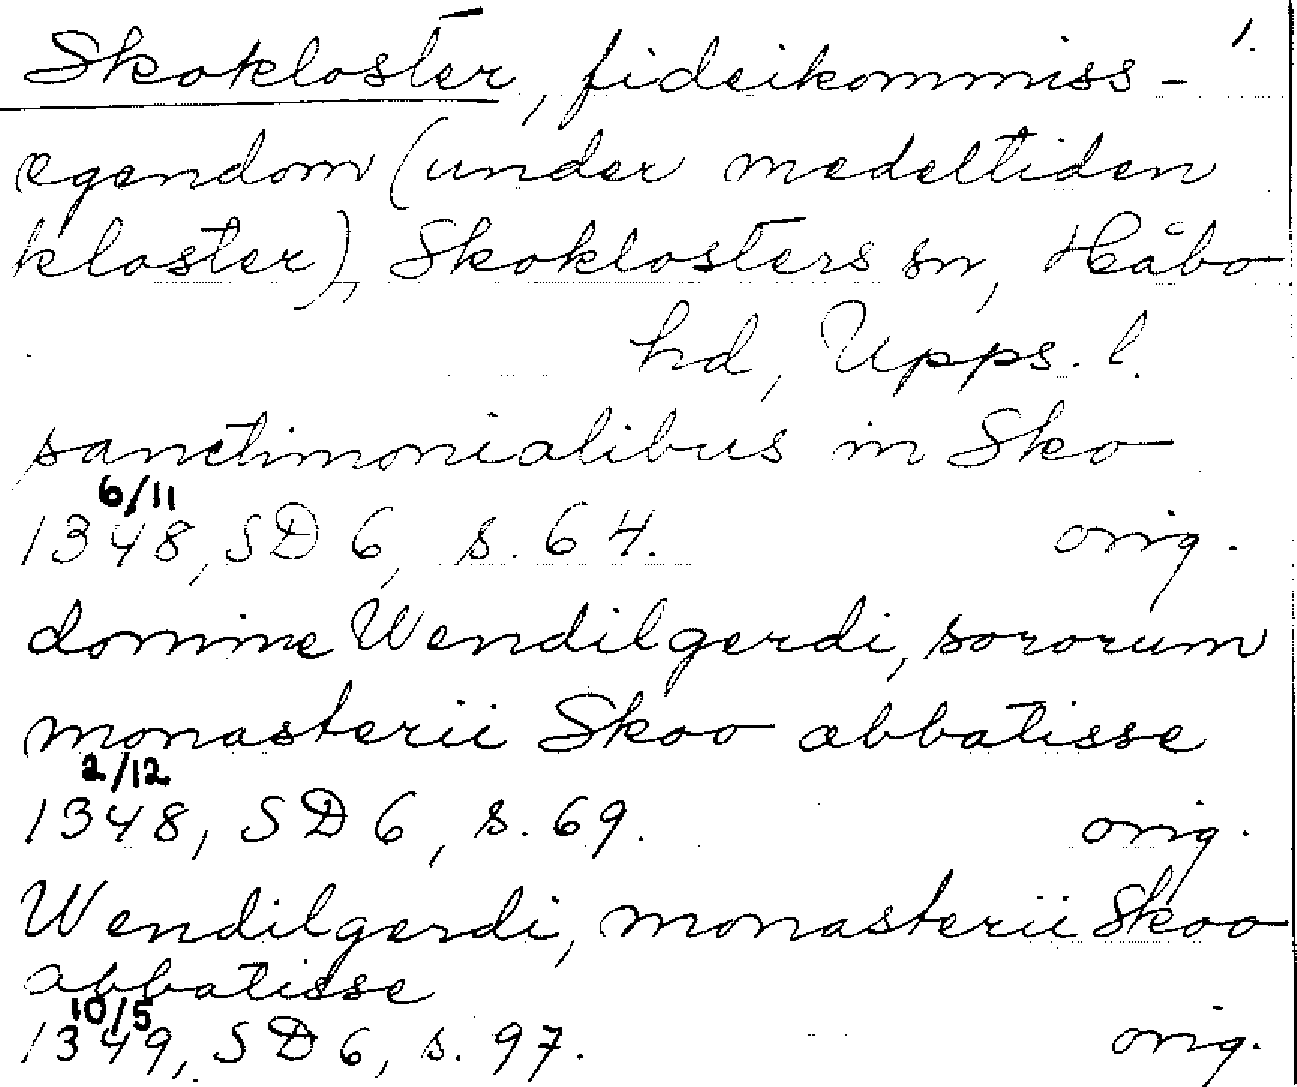 1.
Skokloster, fideikommiss-
egendom (under medeltiden
kloster), Skoklosters sn, Håbo
hd, Upps. l.
sanctimonialibus in Sko
6/11
1348, SD 6, s. 64. orig.
domine Wendilgerdi, sororum
monasterii Skoo abbatisse
2/12
1348, SD 6, s. 69. orig.
Wendilgerdi, monasterii Skoo
abbatisse
10/5
1349, SD 6, s. 97. orig.